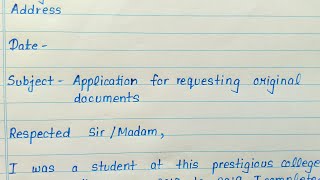 Address
Date -
Subject - Application for requesting original
documents
Respected Sir/Madam,
I was a student at this prestigious college